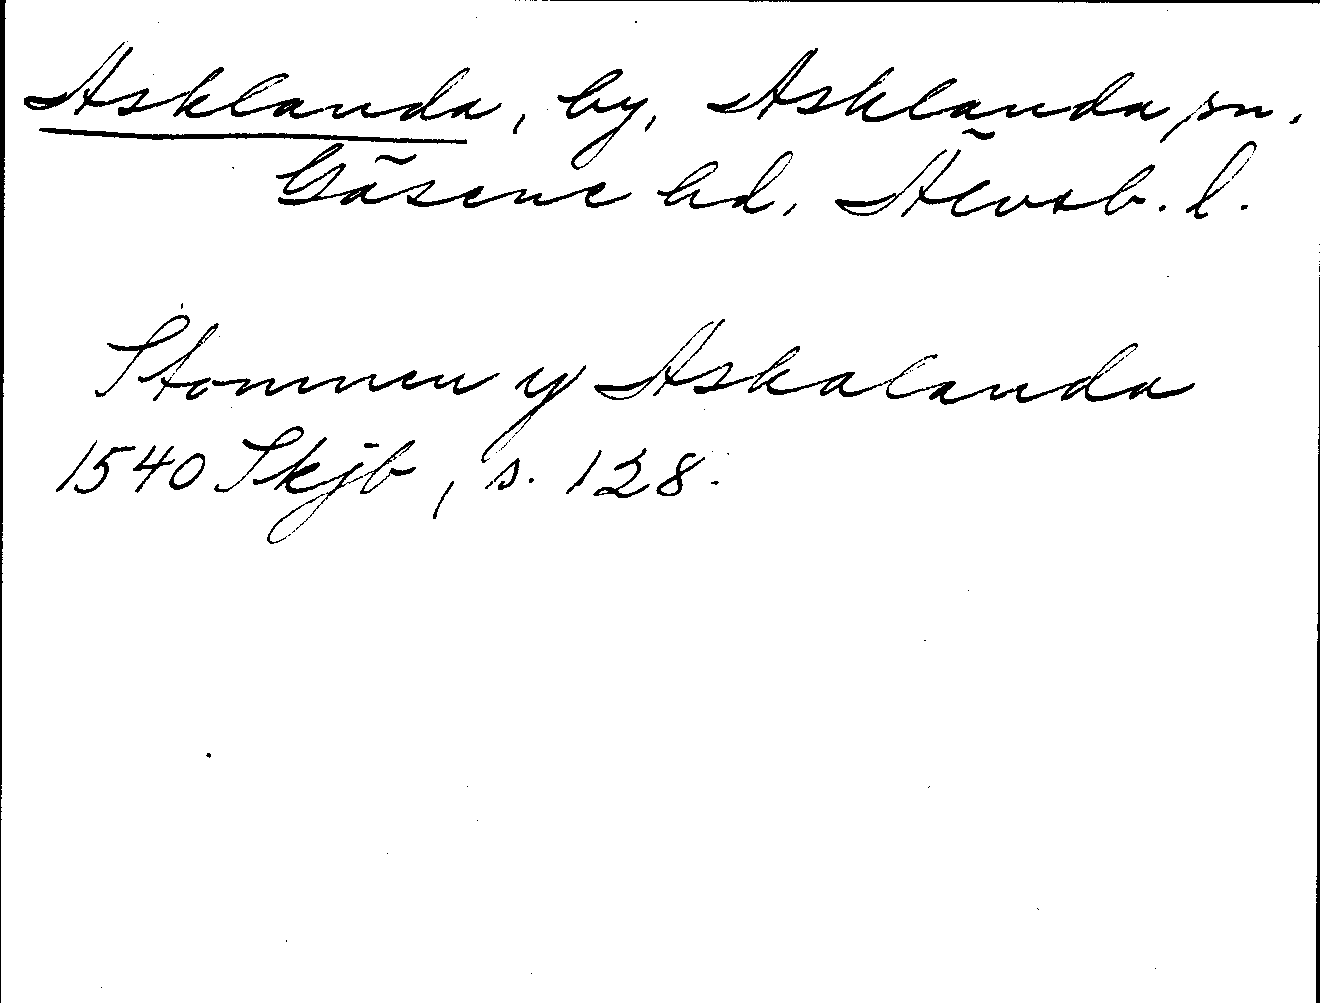 Asklanda, by, Asklanda sn.
Gäsene hd, Älvsb. l.
Stommen y Askalanda
1540 Skjb, s. 128.